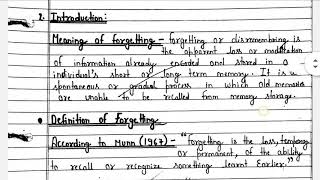 2. Introduction:
Meaning of forgetting - forgetting or disremembering is
the apparent loss or modification
of information already encoded and stored in a
individual's short or long term memory. It is
spontaneous or gradual process in which old memories
are unable to be recalled from memory storage.
Definition of Forgetting
According to Munn (1967) - "forgetting is the loss, temporary
or permanent, of the ability
to recall or recognize something learnt Earlier."